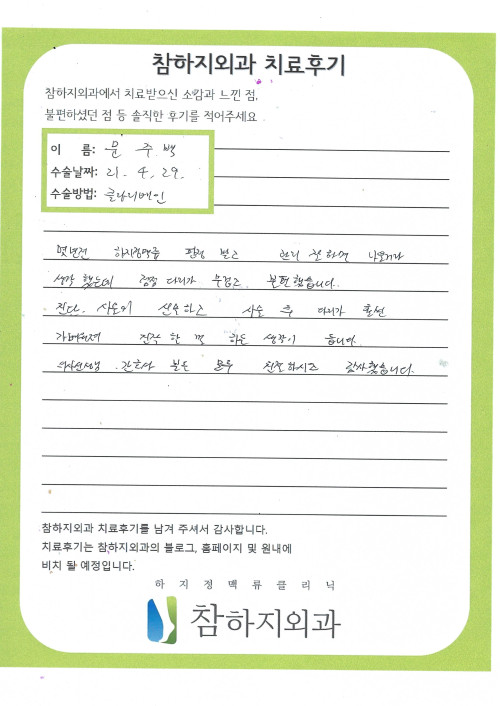 참하지외과 치료후기
참하지외과에서 치료받으신 소감과 느낀 점,
불편하셨던 점 등 솔직한 후기를 적어주세요
이 름: 문 주 백
수술날짜: 21. 4. 29.
수술방법: 클라리베인
몇년전 하지정맥류 판정 받고 관리 잘하면 나을거라
생각 했는데 점점 다리가 무겁고 불편했습니다.
진단, 시술이 신속하고 시술 후 다리가 훨씬
가벼워져 진작 할 걸 하는 생각이 듭니다.
의사선생님, 간호사 분들 모두 친절하시고 감사했습니다.
참하지외과 치료후기를 남겨 주셔서 감사합니다.
치료후기는 참하지외과의 블로그, 홈페이지 및 원내에
비치 될 예정입니다.
하지정맥류클리닉
참하지외과